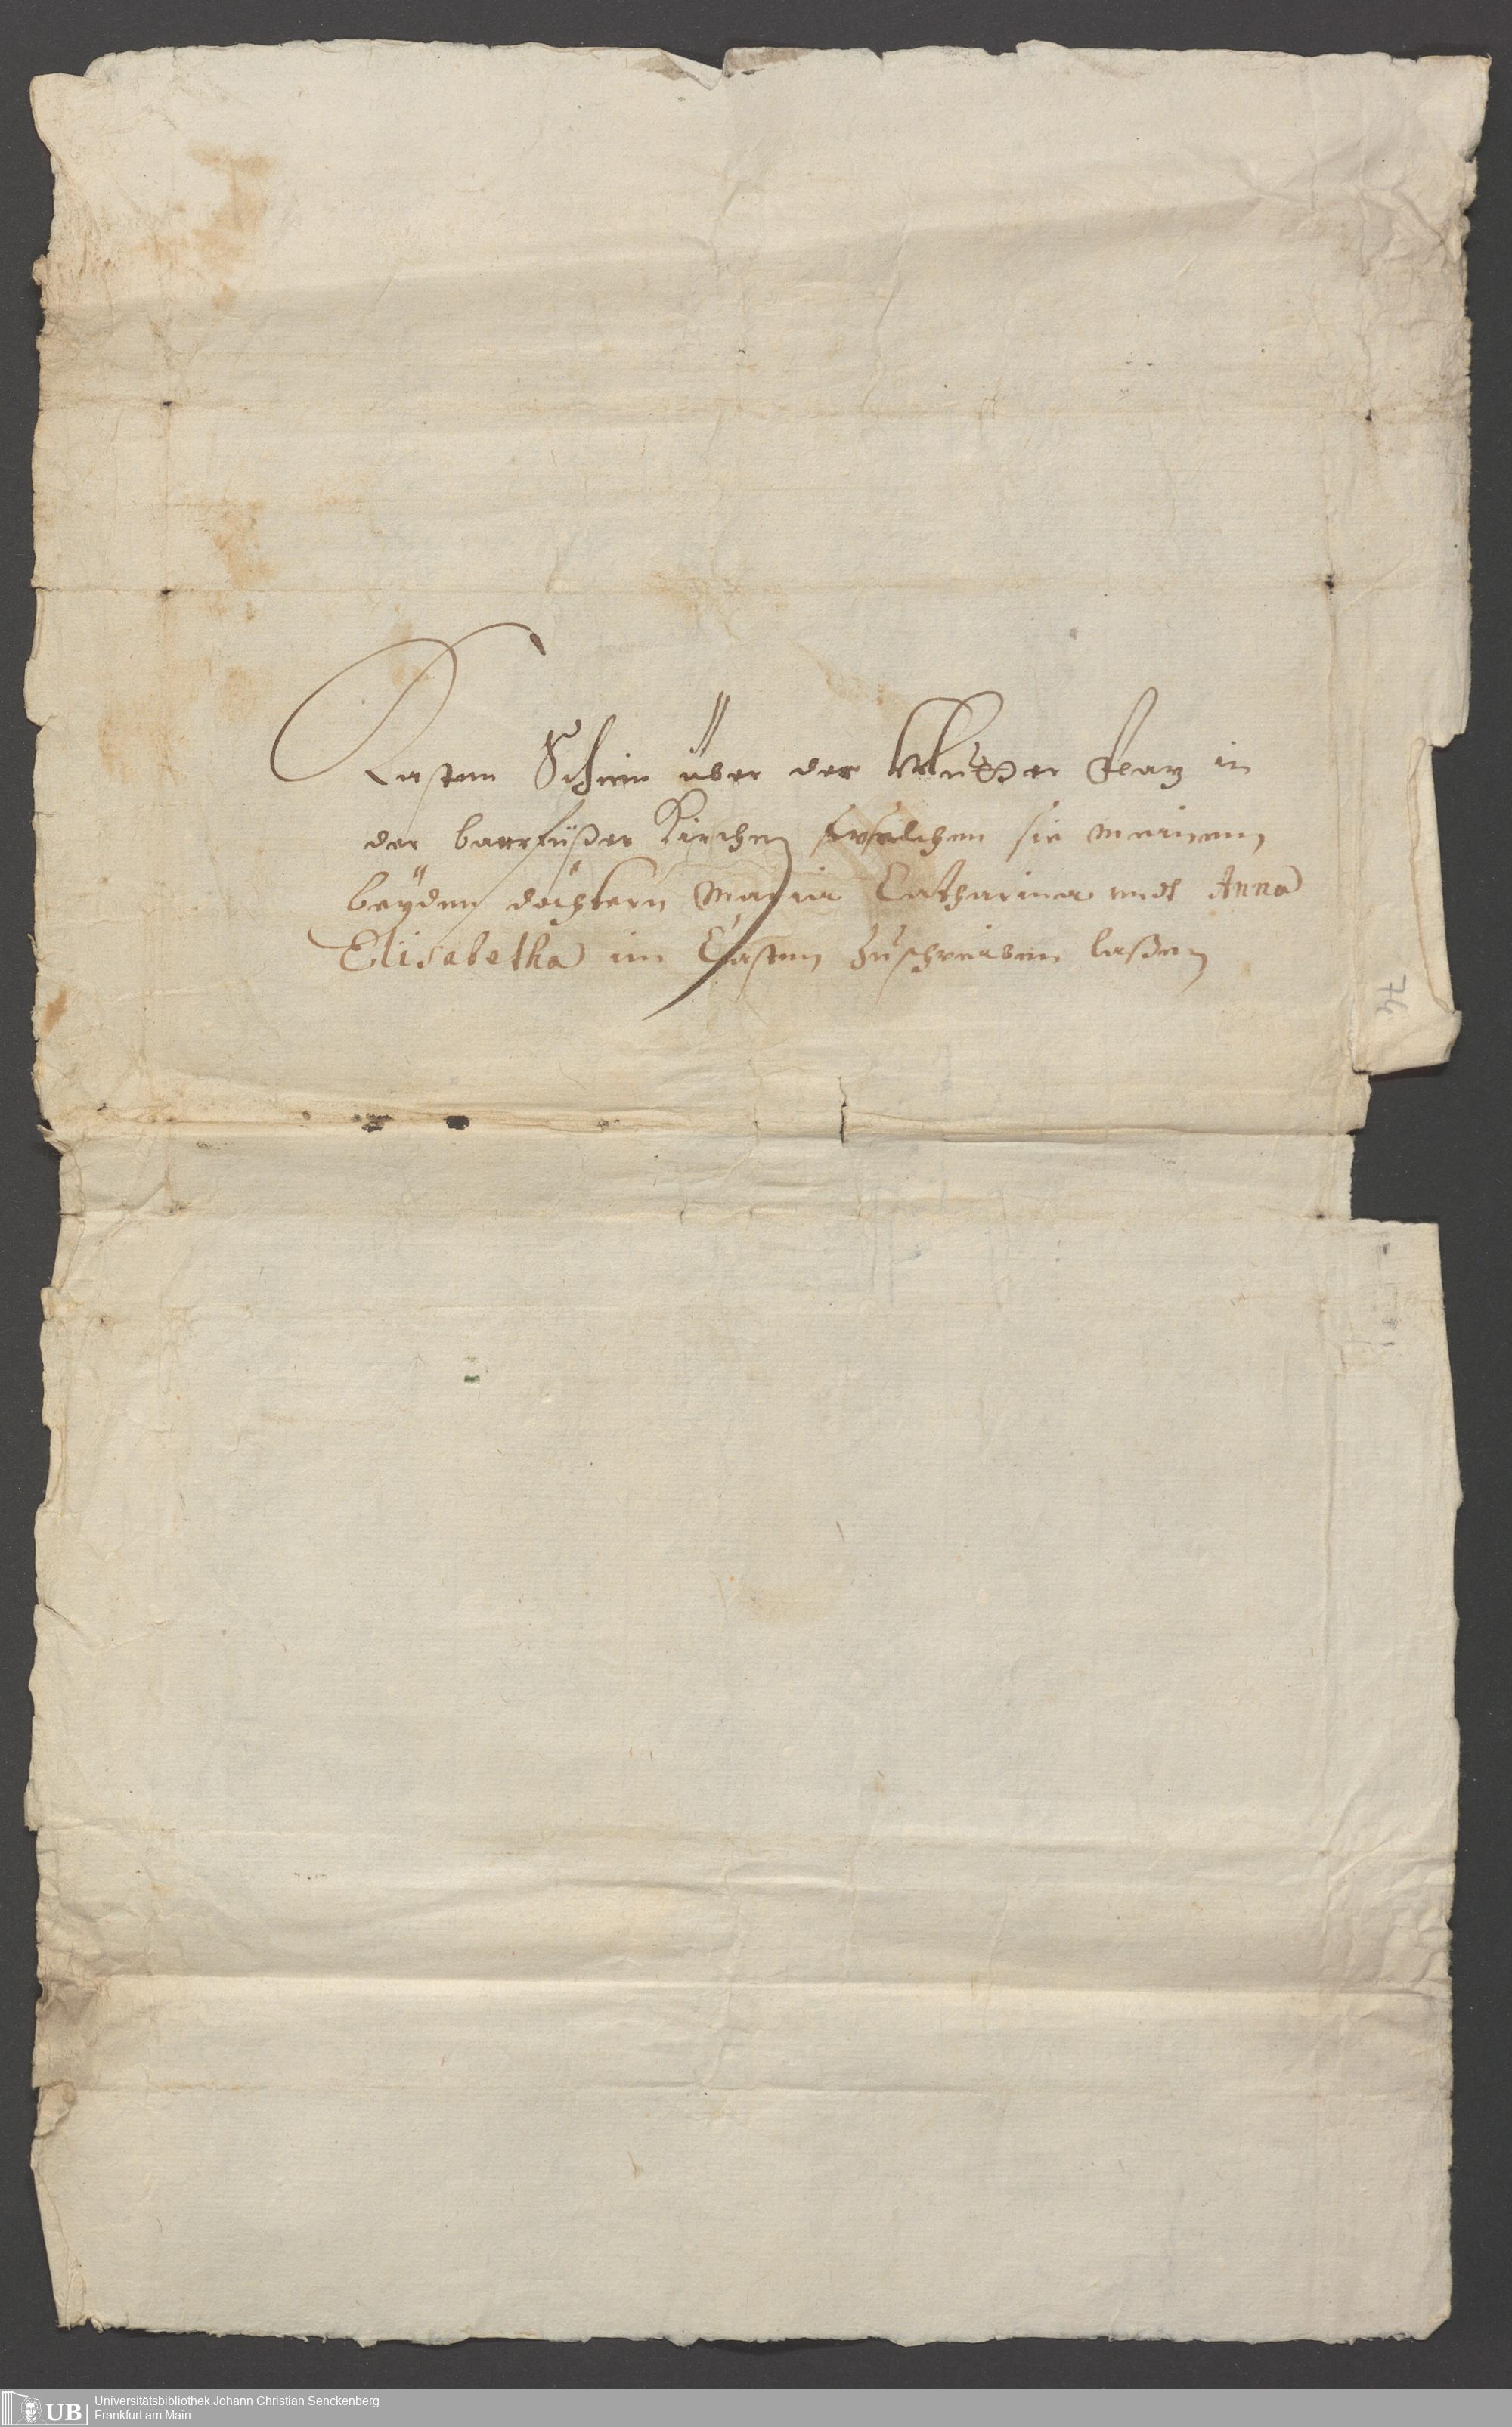 Casten Schein über der Mutter Platz in
der barrfüßer Kirchen welchen sie meinen
beÿden döchtern Maria Catharina undt Anna
Elisabetha im Casten zuschreiben laßen
74
UB
Universitätsbibliothek Johann Christian Senckenberg
Frankfurt am Main